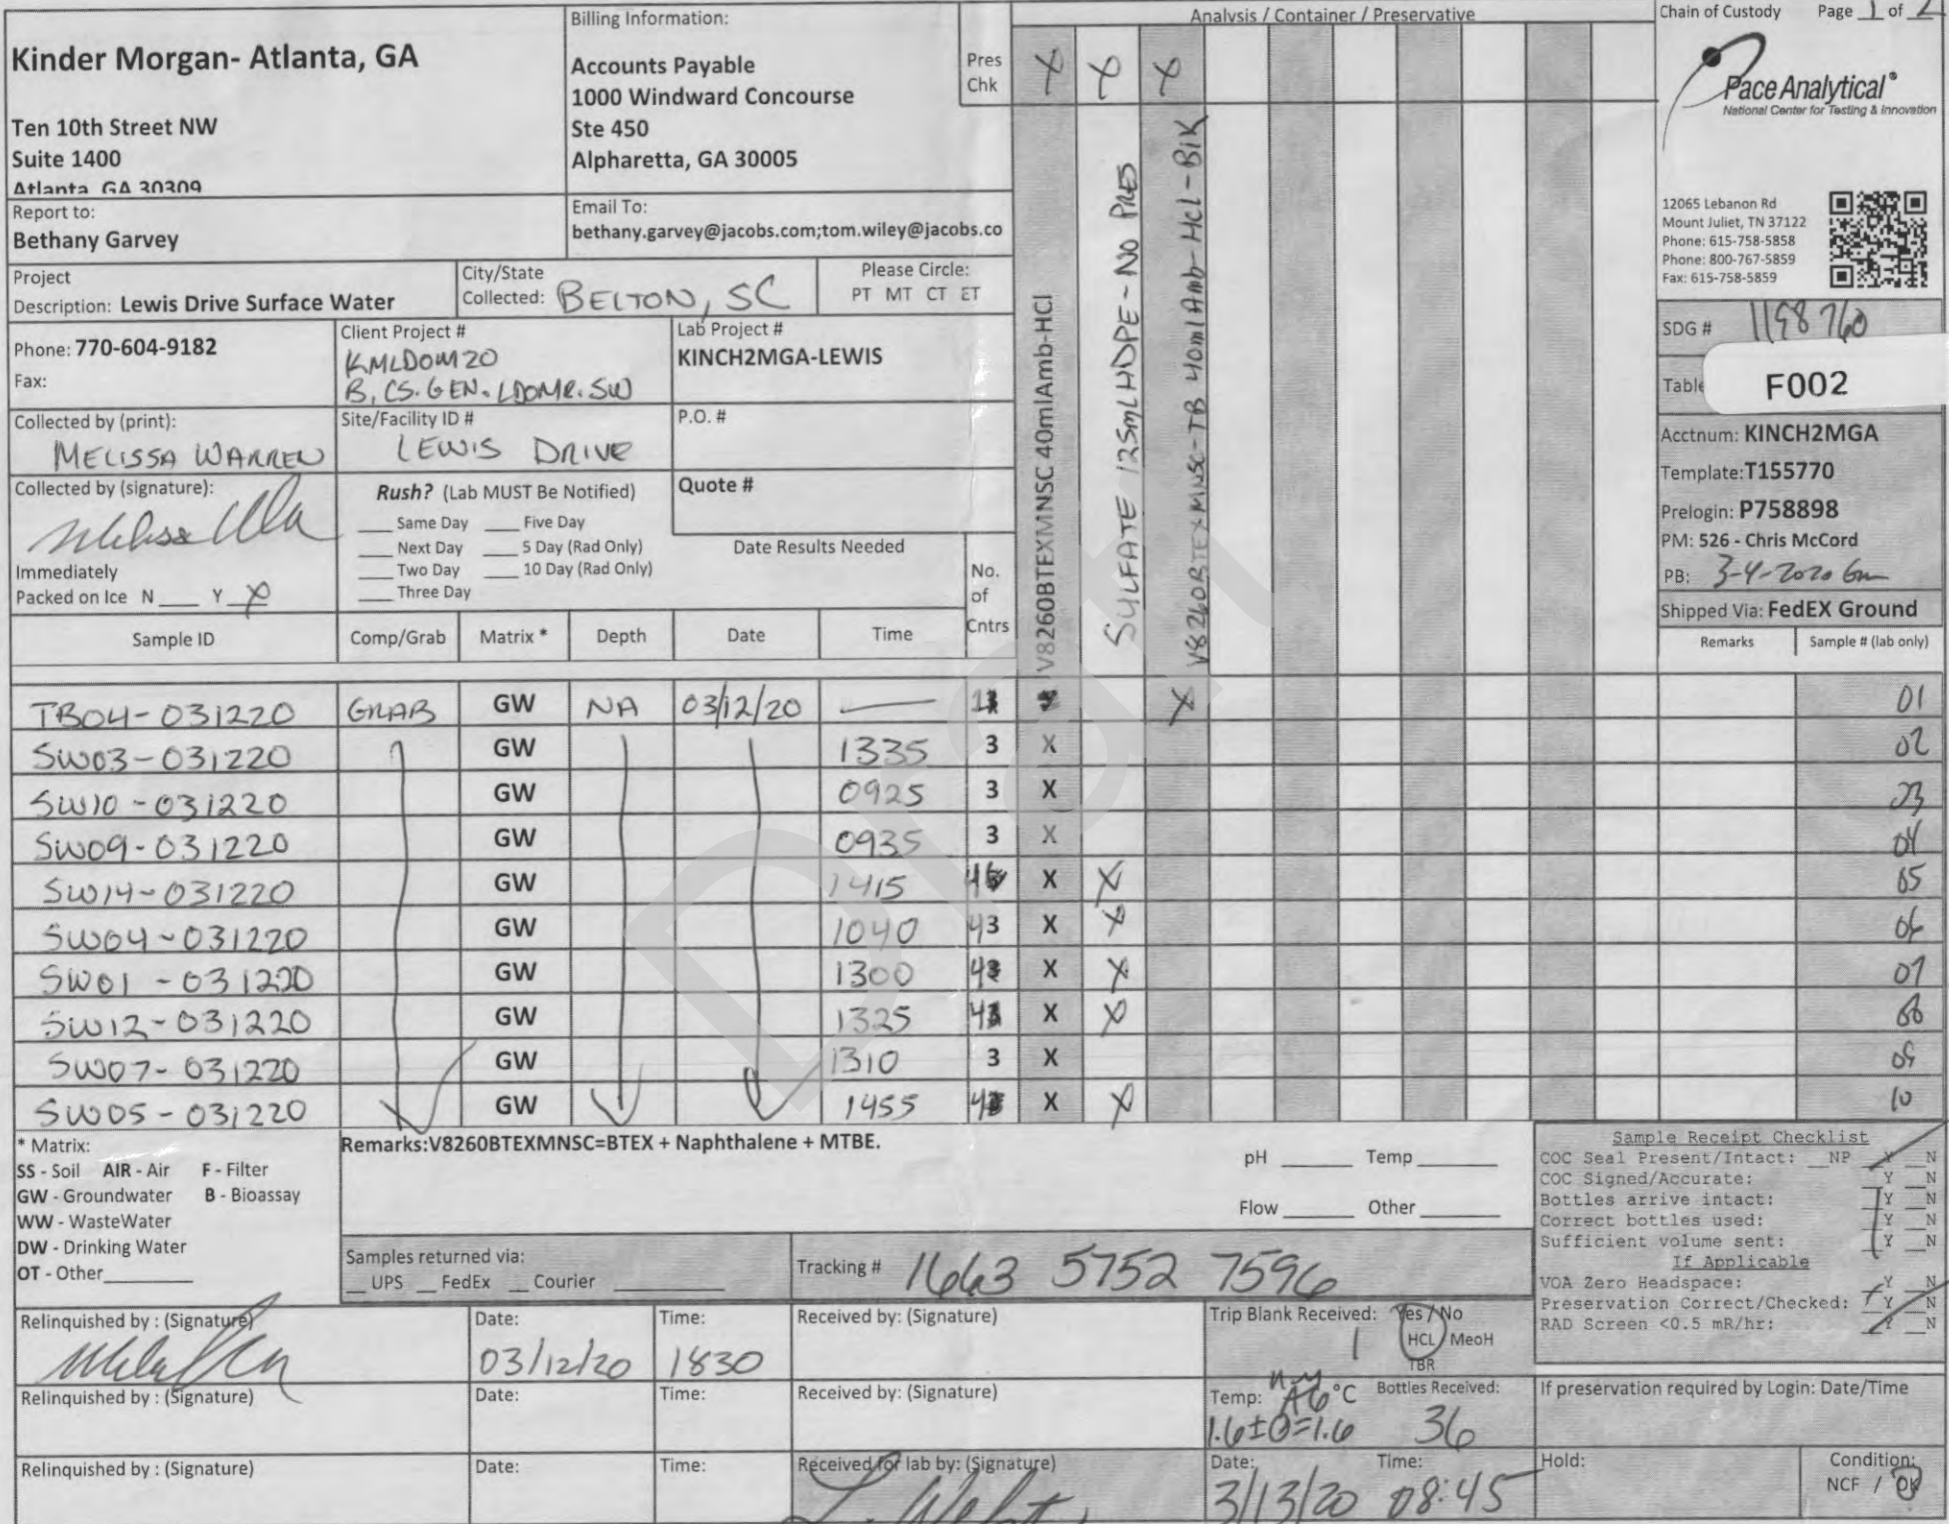 Kinder Morgan- Atlanta, GA
Ten 10th Street NW
Suite 1400
Atlanta, GA 30309
Billing Information:
Accounts Payable
1000 Windward Concourse
Ste 450
Alpharetta, GA 30005
Pres
Chk
Analysis / Container / Preservative
X X X
Chain of Custody Page 1 of 2
Pace Analytical®
National Center for Testing & Innovation
12065 Lebanon Rd
Mount Juliet, TN 37122
Phone: 615-758-5858
Phone: 800-767-5859
Fax: 615-758-5859
Report to:
Bethany Garvey
Email To:
bethany.garvey@jacobs.com;tom.wiley@jacobs.co
Project
Description: Lewis Drive Surface Water
City/State
Collected: BELTON, SC
Please Circle:
PT MT CT ET
Phone: 770-604-9182
Fax:
Client Project #
KMLDOM20
B.CS.GEN.LDOMR.SW
Lab Project #
KINCH2MGA-LEWIS
Collected by (print):
MELISSA WARREN
Site/Facility ID #
LEWIS DRIVE
P.O. #
Collected by (signature):
Rush? (Lab MUST Be Notified)
___ Same Day ___ Five Day
___ Next Day ___ 5 Day (Rad Only)
___ Two Day ___ 10 Day (Rad Only)
___ Three Day
Quote #
Date Results Needed
Immediately
Packed on Ice N ___ Y X
No.
of
Cntrs
V8260BTEXMNSC 40mlAmb-HCl
SULFATE 125mLHDPE-NO PRES
V8260BTEXMNSC-TB 40mlAmb-HCl-BlK
SDG # 1198760
Table
F002
Acctnum: KINCH2MGA
Template: T155770
Prelogin: P758898
PM: 526 - Chris McCord
PB: 3-4-2020
Shipped Via: FedEX Ground
Remarks Sample # (lab only)
Sample ID Comp/Grab Matrix * Depth Date Time
TB04-031220 GRAB GW NA 03/12/20 — X 01
SW03-031220 GW 1335 3 X 02
SW10-031220 GW 0925 3 X 03
SW09-031220 GW 0935 3 X 04
SW14-031220 GW 1415 4 X X 05
SW04-031220 GW 1040 43 X X 06
SW01-031220 GW 1300 43 X X 07
SW12-031220 GW 1325 43 X X 08
SW07-031220 GW 1310 3 X 09
SW05-031220 GW 1455 43 X X 10
Draft
* Matrix:
SS - Soil AIR - Air F - Filter
GW - Groundwater B - Bioassay
WW - WasteWater
DW - Drinking Water
OT - Other___
Remarks:V8260BTEXMNSC=BTEX + Naphthalene + MTBE.
pH ___ Temp ___
Flow ___ Other ___
Samples returned via:
__ UPS __ FedEx __ Courier ___
Tracking # 1663 5752 7596
Sample Receipt Checklist
COC Seal Present/Intact: __NP __Y __N
COC Signed/Accurate: __Y __N
Bottles arrive intact: __Y __N
Correct bottles used: __Y __N
Sufficient volume sent: __Y __N
If Applicable
VOA Zero Headspace: __Y __N
Preservation Correct/Checked: __Y __N
RAD Screen <0.5 mR/hr: __Y __N
Relinquished by : (Signature)
Date: 03/12/20
Time: 1830
Received by: (Signature)
Trip Blank Received: Yes / No
1 HCL / MeoH
TBR
Relinquished by : (Signature)
Date:
Time:
Received by: (Signature)
Temp: °C
1.6±0=1.6
Bottles Received:
36
If preservation required by Login: Date/Time
Relinquished by : (Signature)
Date:
Time:
Received for lab by: (Signature)
Date: 3/13/20
Time: 08:45
Hold:
Condition:
NCF / OK